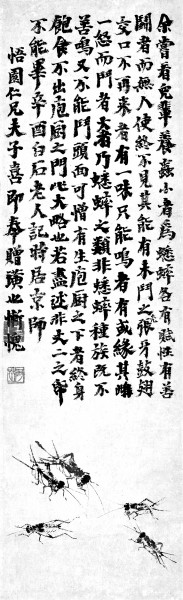 余嘗看兒輩養蟲小者為蟋蟀各有賦性有善
鬪者而無人使終不見其能有未鬪之張牙鼓翅
交口不再來者有一味只能鳴者有或緣其雌
一怒而鬪者大者乃蟋蟀之類非蟋蟀種族既不
善鳴又不能鬪頭面可憎有生於庖廚之下者終身
飽食不出庖廚之門此大略也若盡述非丈二之紙
不能畢辛酉白石老人記時居京師
悟園仁兄夫子喜即奉贈璜也慚愧